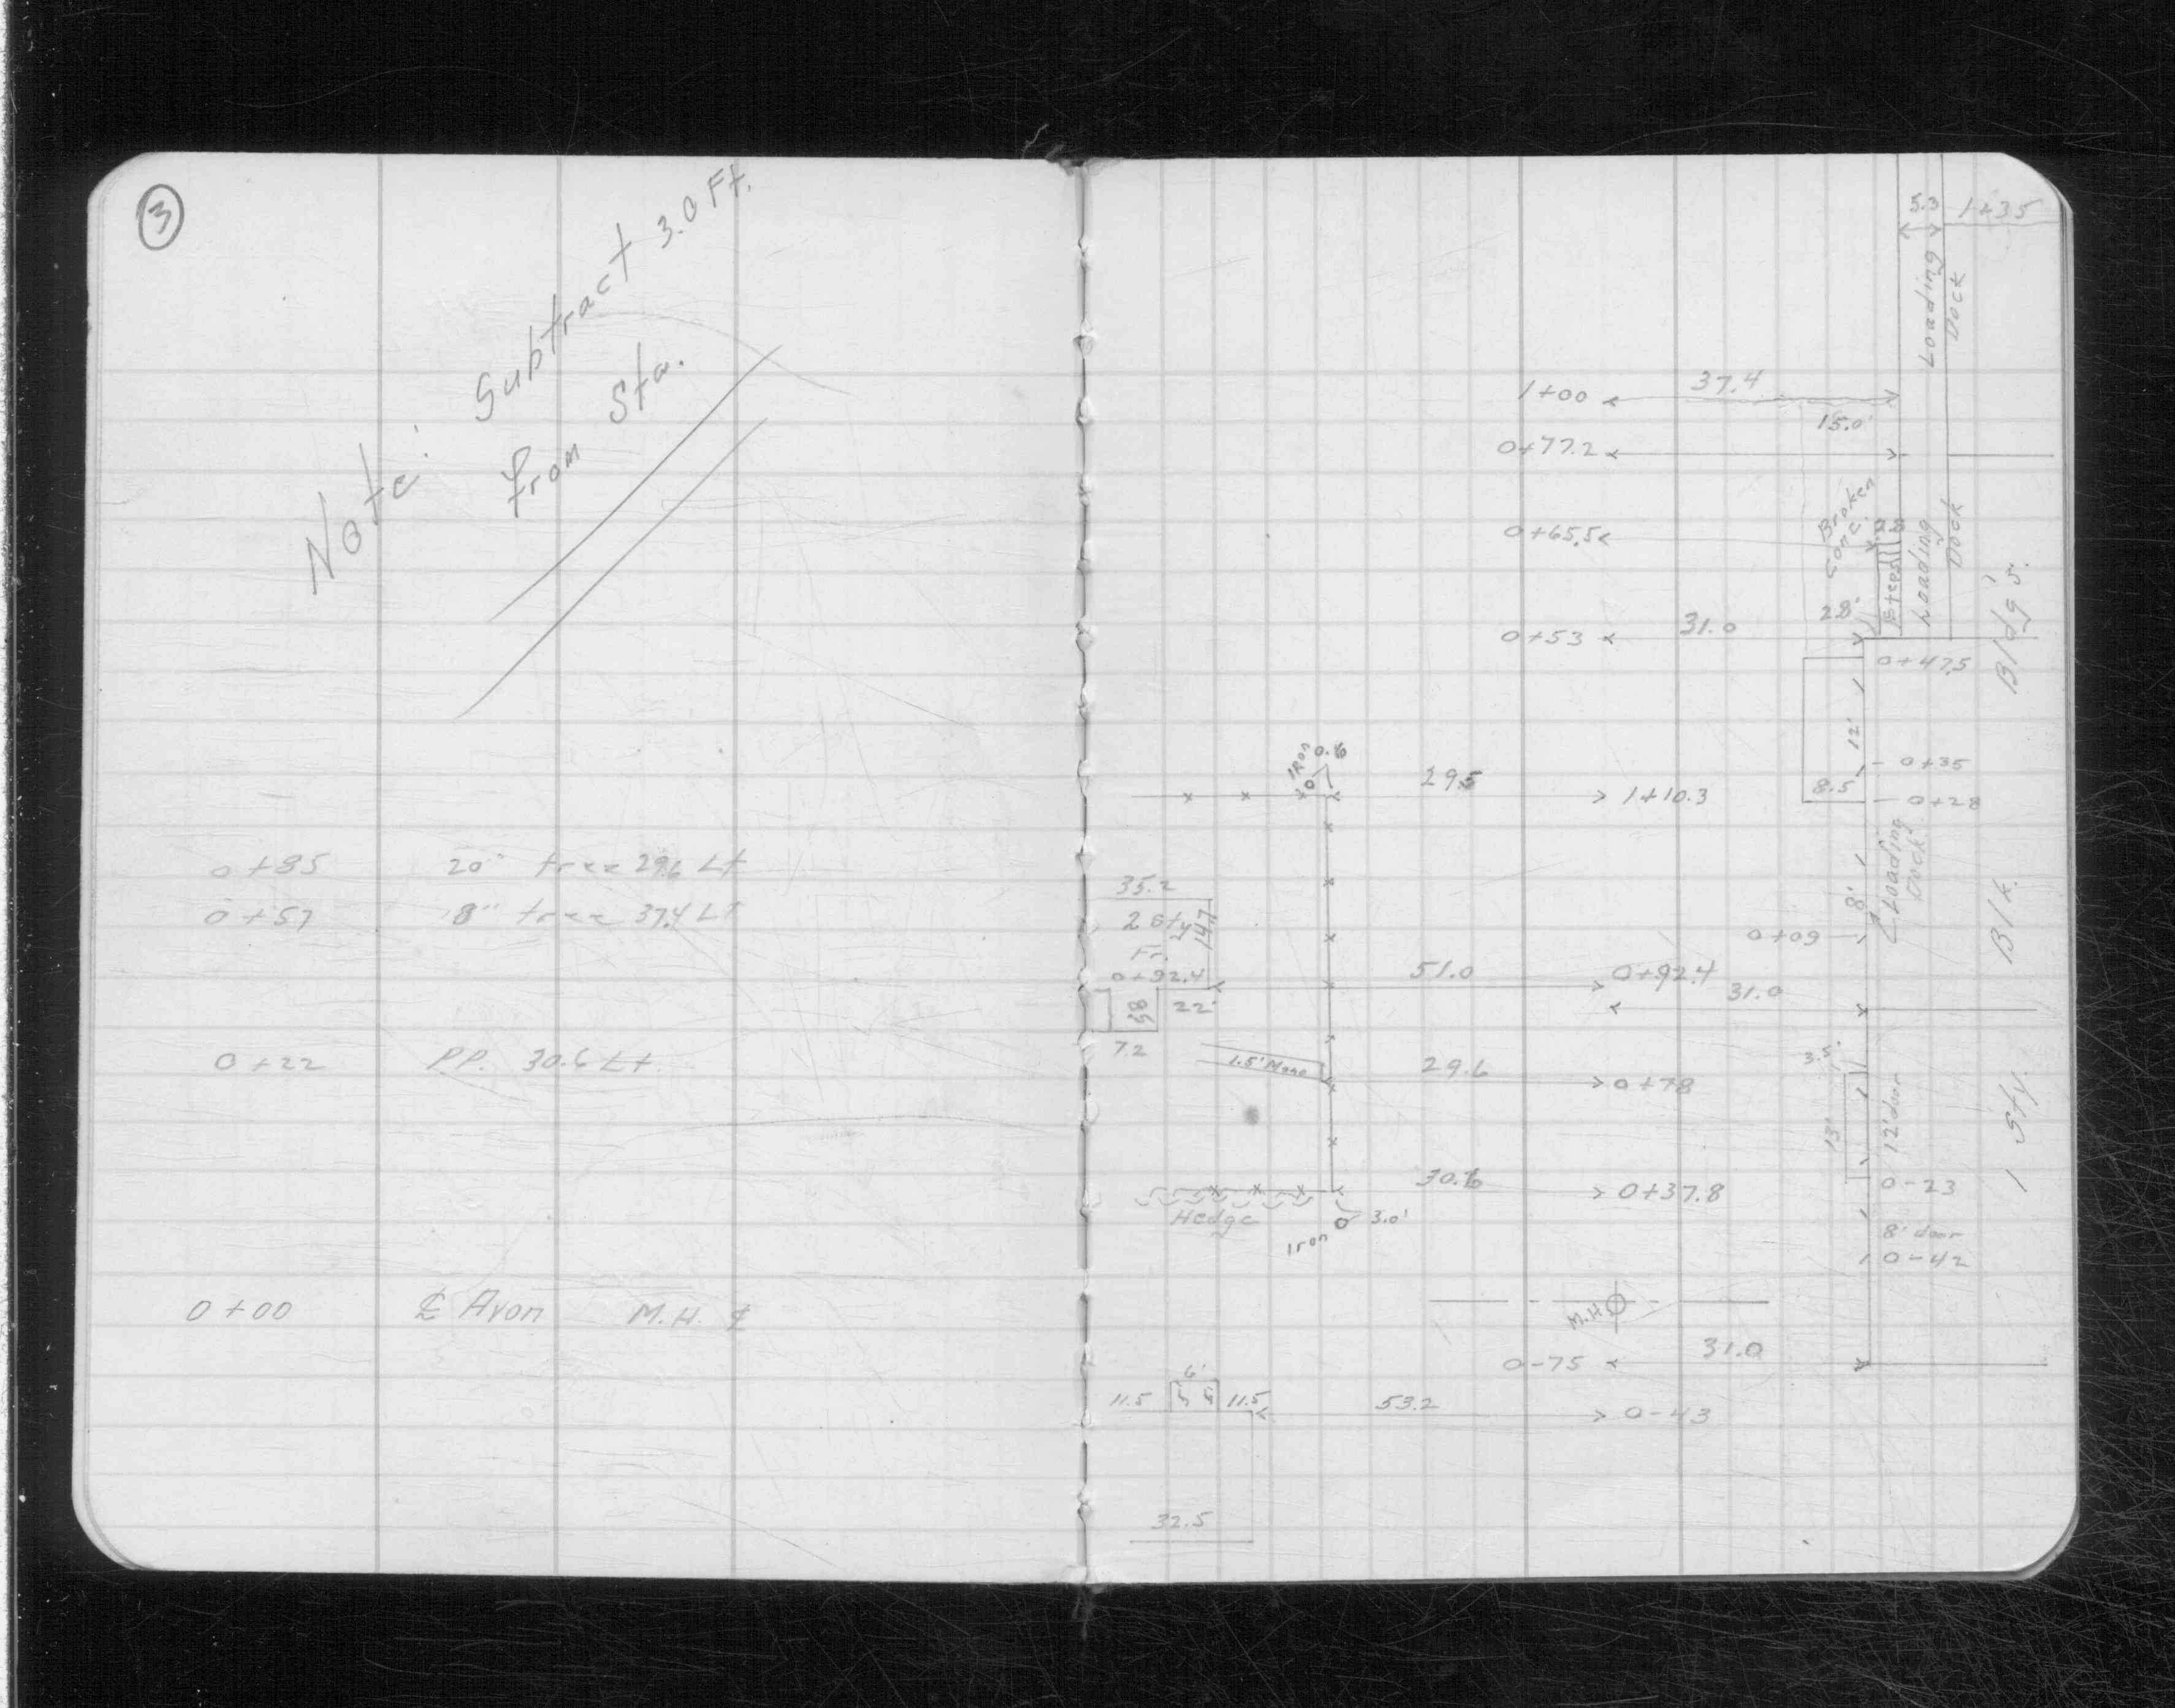 3
Note: Subtract 3.0 Ft.
from Sta.
0+85 20" tree 29.6 Lt
0+57 8" tree 37.4 LT
0+22 P.P. 30.6 Lt
0+00 ℄ Avon M.H. ℄
5.3 1+35
Loading
Dock
1+00 37.4
15.0'
0+77.2
Broken
Conc.
0+65.5
Steps
Loading
Dock
28'
0+53 31.0
0+47.5
12'
0+35
8.5
0+28
Iron 0.6
29.5 1+10.3
Loading
Dock
8'
35.2
2 Sty
Fr.
14.7
0+92.4
0+09
51.0 0+92.4
31.0
22'
7.2
1.5' Mono
29.6 0+78
3.5'
13'
12' door
30.6 0+37.8
0-23
Hedge
Iron 3.0'
8' door
0-42
M.H.
0-75 31.0
6'
11.5 5' 5' 11.5
53.2 0-43
32.5
1 Sty. Blk. Bldg's.